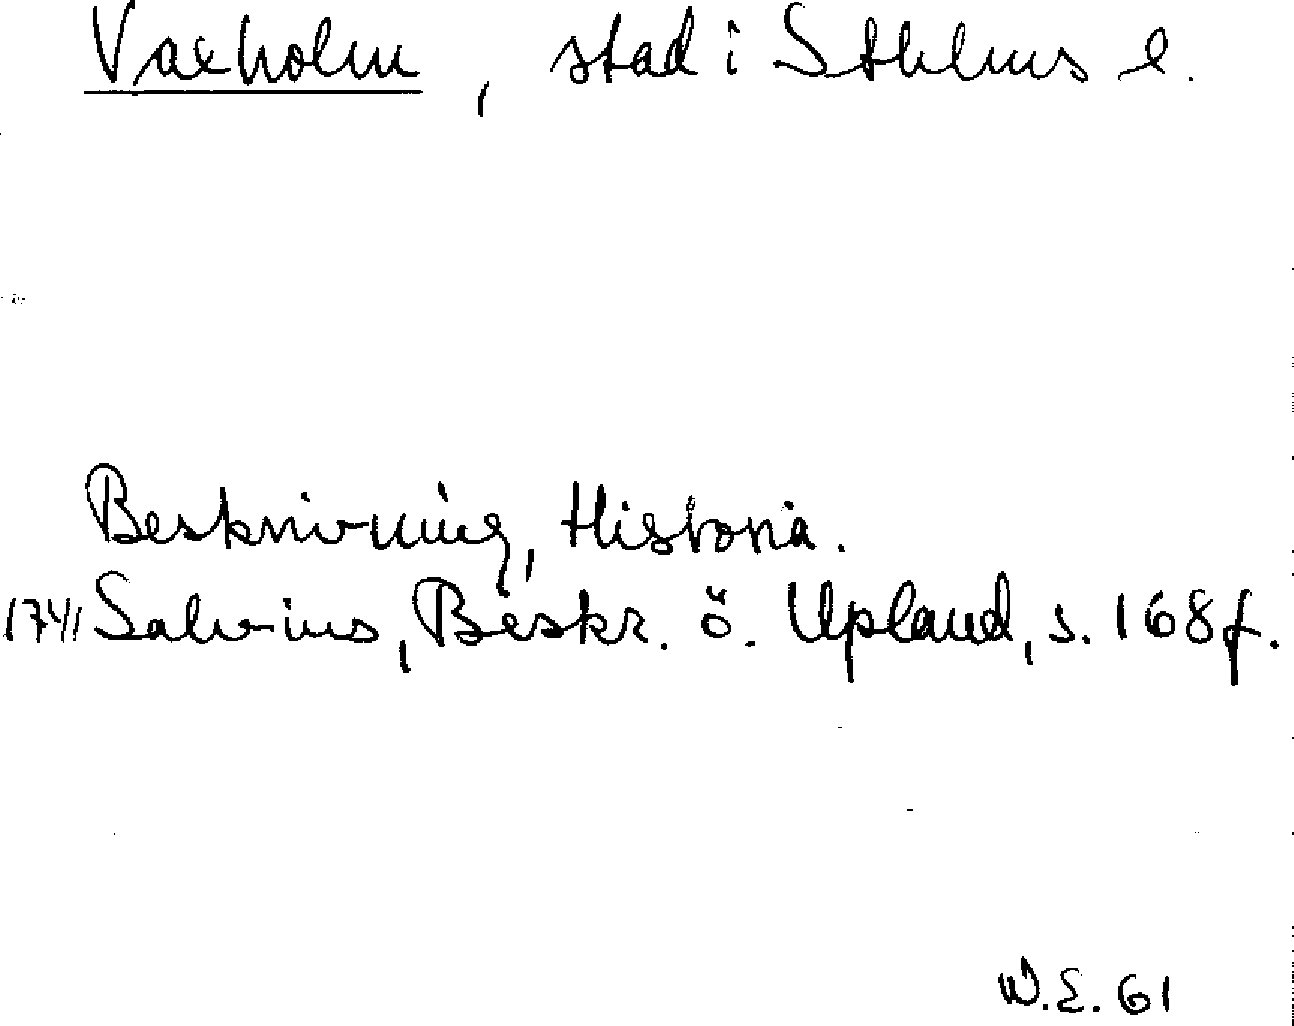 Vaxholm, stad i Sthlms l.
Beskrivning, Historia.
1741 Salvius, Beskr. ö. Upland, s. 168 f.
W.E. 61